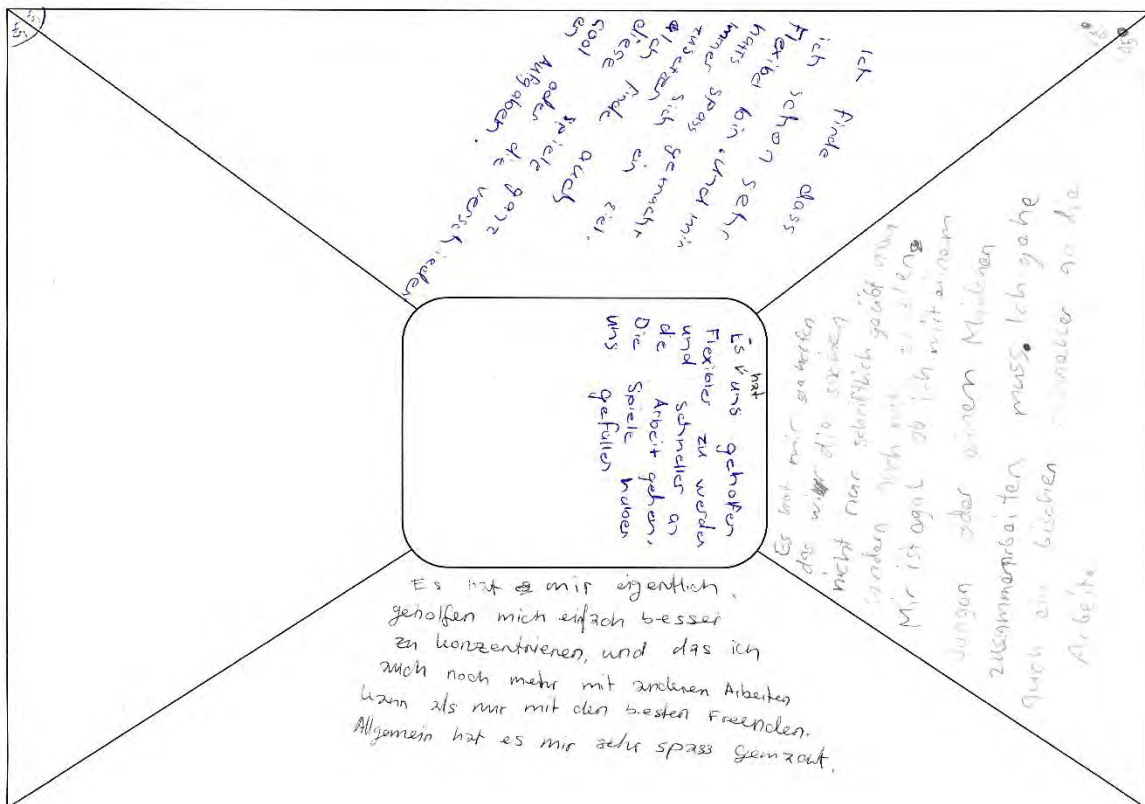 Ich finde dass
ich schon sehr
Flexibel bin und mir
hats
immer spass gemacht
zusetzen sich ein Ziel.
Ich finde auch
diese Spiele ganz
cool oder die verschieden
en Aufgaben.
Es hat uns geholfen
Flexibler zu werden
und schneller an
die Arbeit gehen.
Die Spiele haben
uns gefallen
Es hat mir geholfen
das wir die sachen
nicht nur schriftlich geübt
sondern auch mit
Mir ist egal ob ich mit einem
Jungen oder einen Mädchen
zusammenarbeiten muss. Ich gehe
auch ein bischen schneller an die
Arbeite
Es hat mir eigentlich
geholfen mich einfach besser
zu konzentrieren, und das ich
auch noch mehr mit anderen Arbeiten
kann als nur mit den besten Freenden.
Allgemein hat es mir sehr spass gemacht.